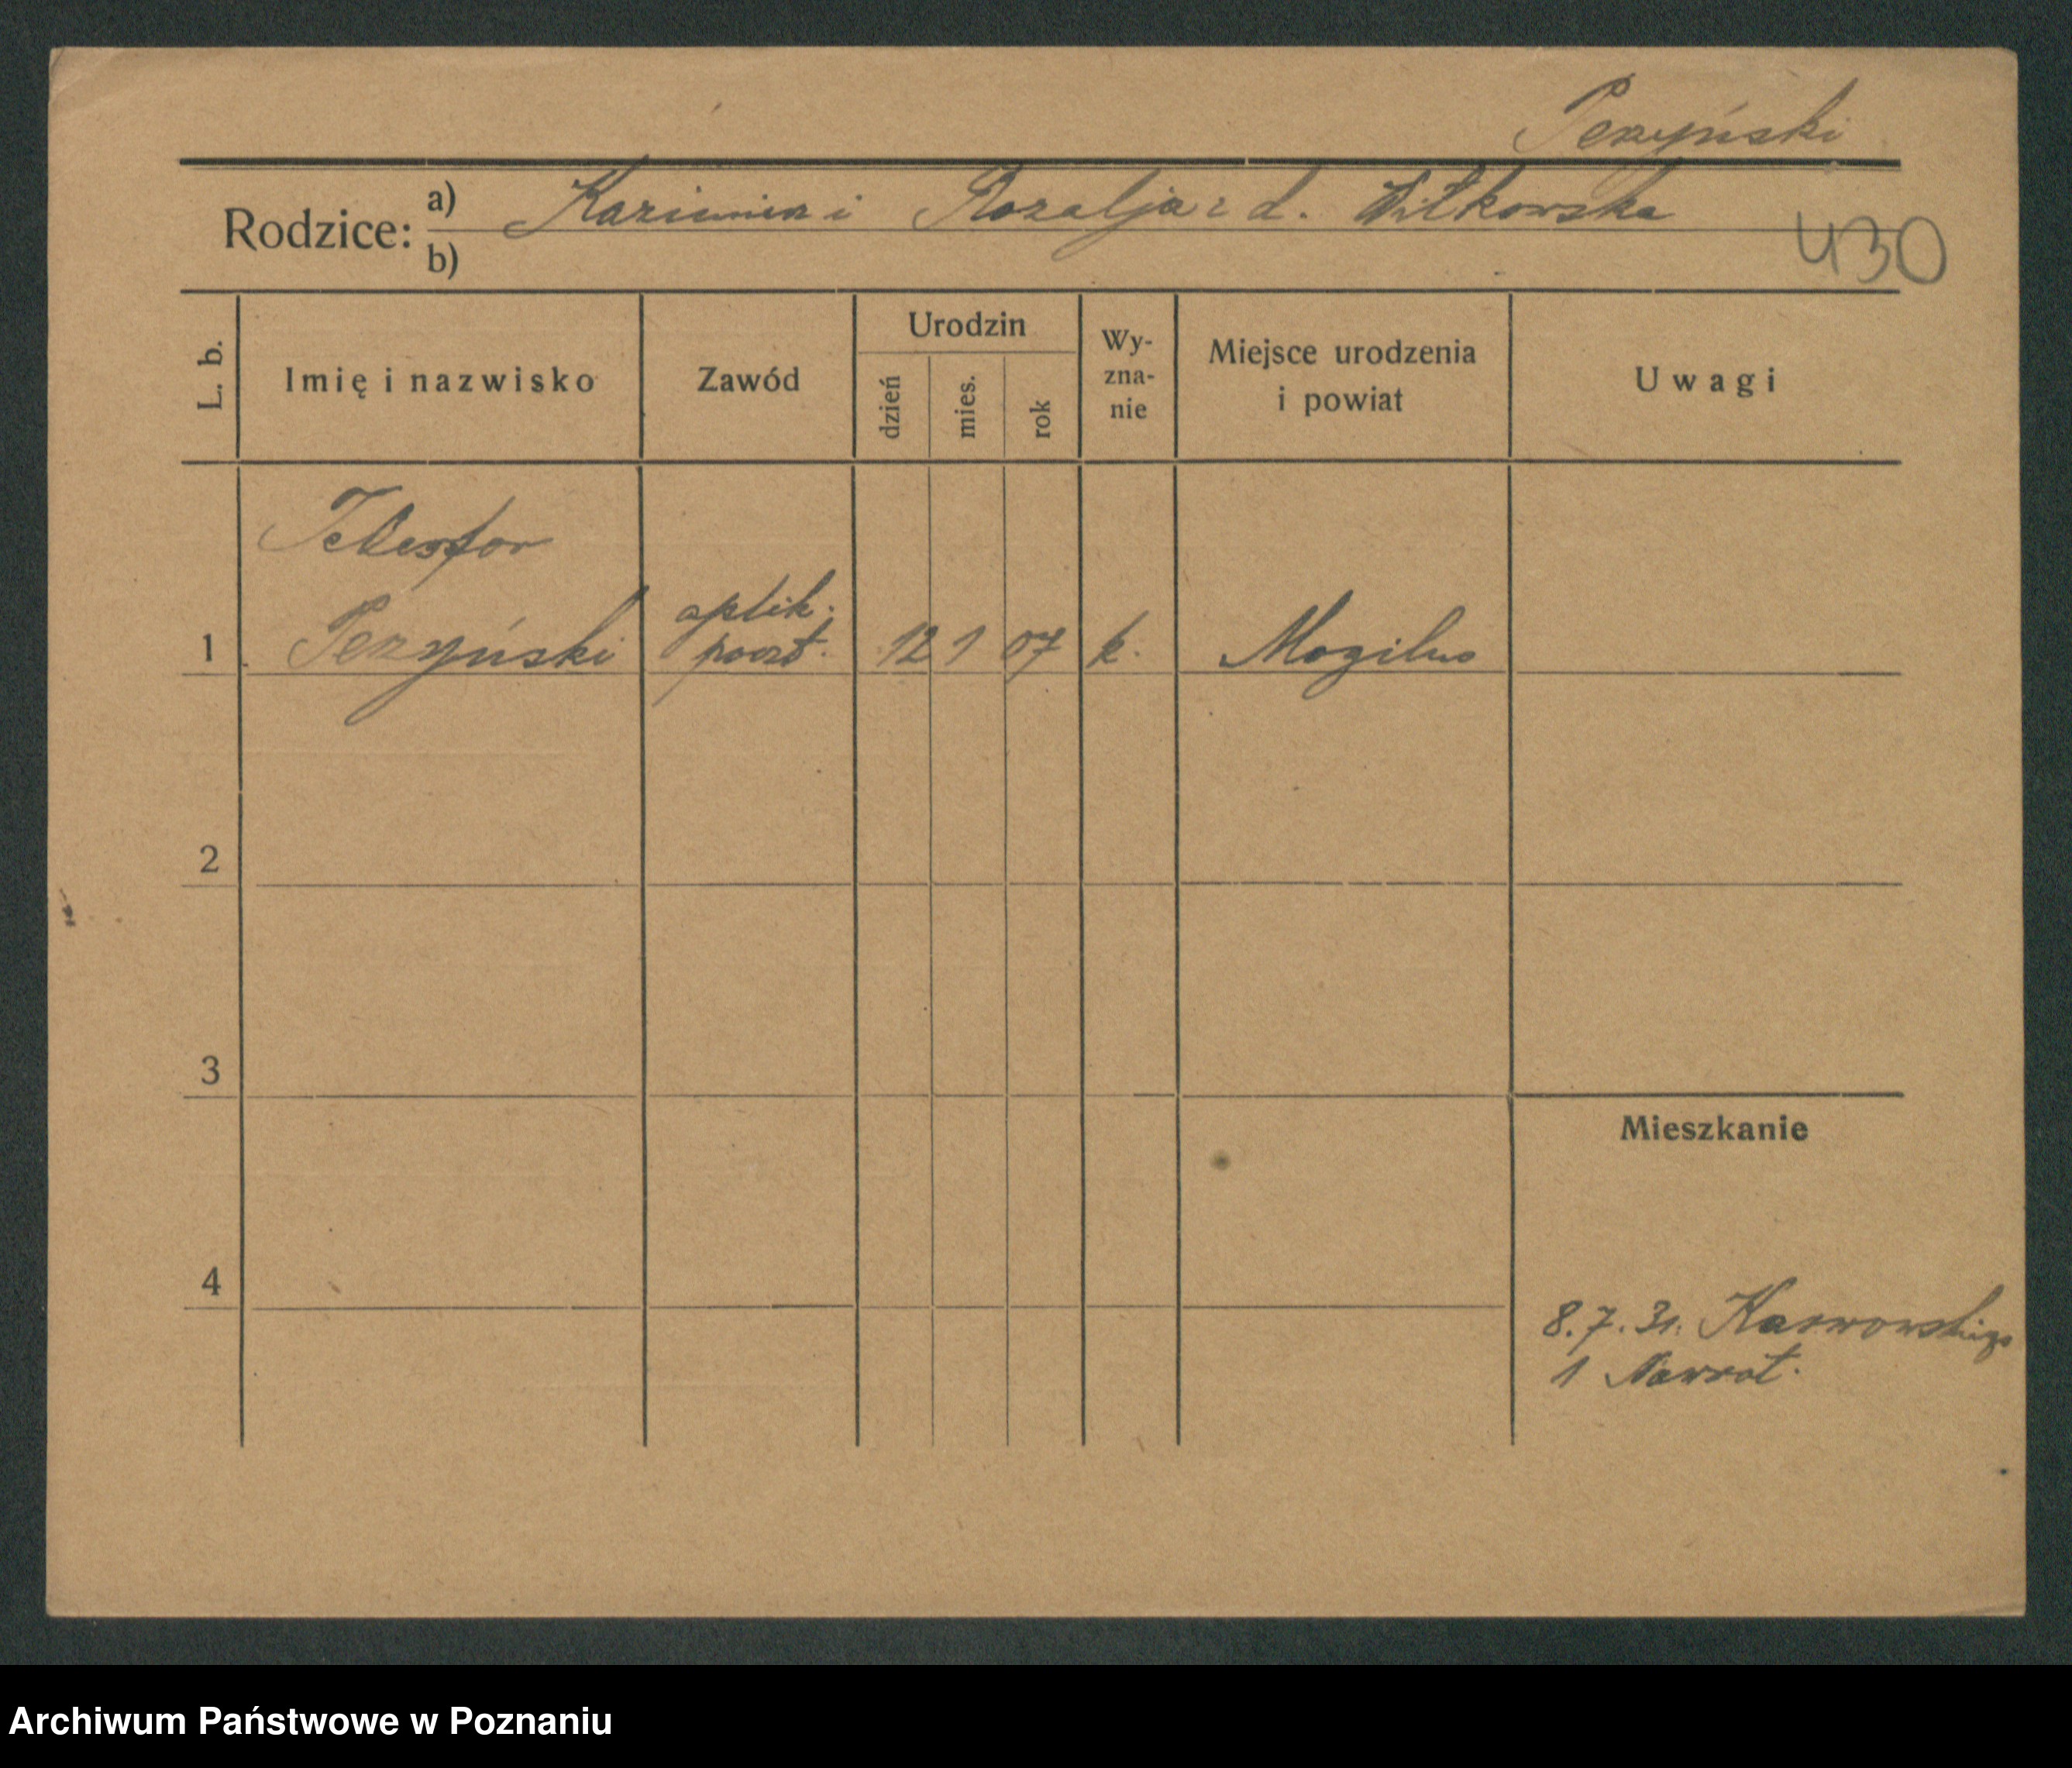 Pezyński
Rodzice: a) Kazimierz i Rozalja z d. Witkowska
b)
430
L. b.
Imię i nazwisko
Zawód
Urodzin
dzień
mies.
rok
Wy-
zna-
nie
Miejsce urodzenia
i powiat
Uwagi
Telesfor
aplik.
1 Pezyński poczt. 12 1 07 k. Mogilno
2
3
Mieszkanie
4
8.7.31. Karwowskiego
1 Nawrot.
Archiwum Państwowe w Poznaniu